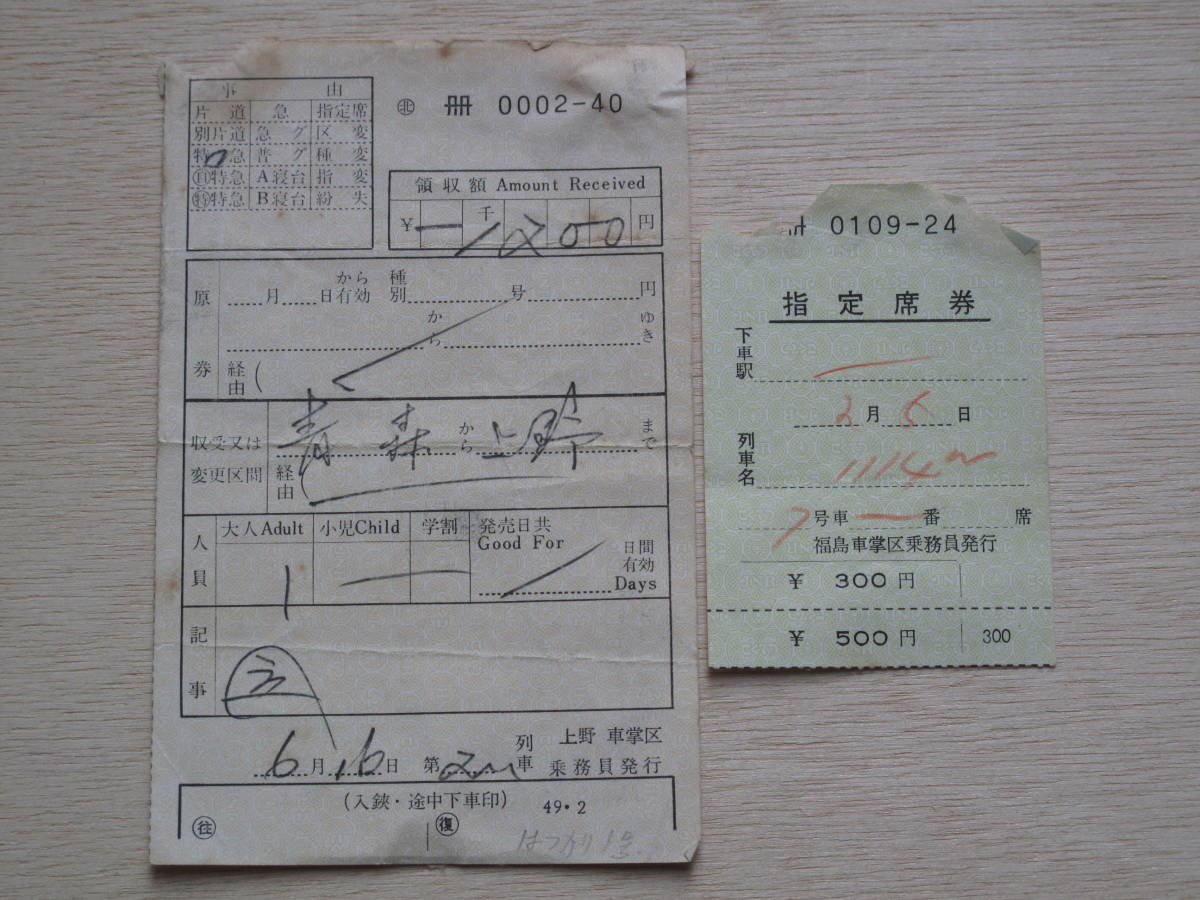 事 由
片道 急 指定席
別片道 急グ 区変
特急 普グ 種変
特急 A寝台 指変
特急 B寝台 紛失
北 冊 0002-40
領収額 Amount Received
¥ 一 千 1200 円
原券
月 日から有効 種別 号 円
から ゆき
経由(
収受又は変更区間
青森 から 上野 まで
経由(
人員
大人Adult 小児Child 学割 発売日共 Good For
1 日間有効 Days
記事
立
6月16日 第2M列車 上野 車掌区乗務員発行
(入鋏・途中下車印) 49・2
往 復
はつかり1号
冊 0109-24
指定席券
下車駅
月 日
列車名 1114M
7号車 一番 席
福島車掌区乗務員発行
¥ 300円
¥ 500円 300